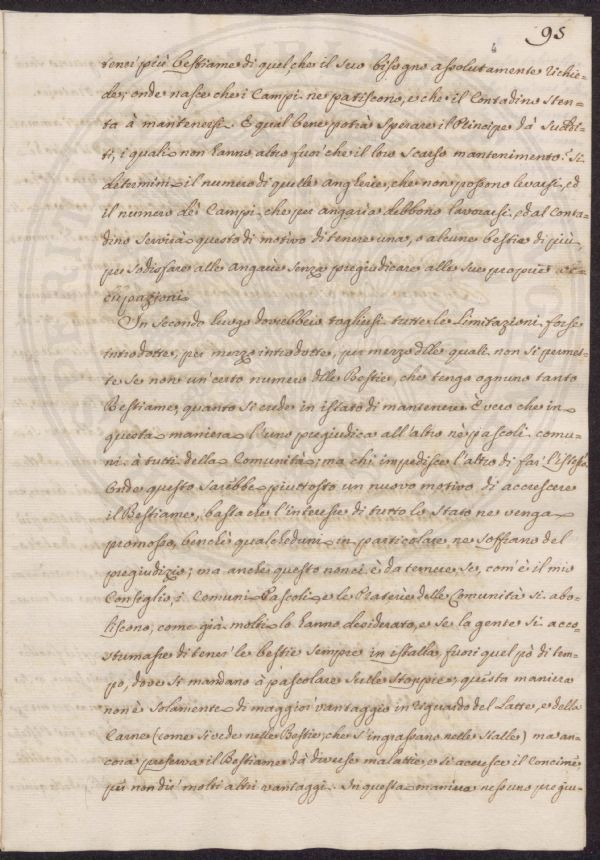 95
tener più bestiame di quel, che il suo bisogno assolutamente richie-
de; onde nasce che i Campi ne patiscono, e che il Contadino sten-
ta à mantenersi. E qual bene potrà sperare il Principe dà Suddi-
ti, i quali non hanno altro fuor che il loro scarso mantenimento? Si
ditermini il numero di quelle Angherie, che non possono levarsi, ed
il numero dei Campi che per angaria debbono lavorarsi, ed al Conta-
dino servirà questo di motivo di tenere una, o alcune bestie di più,
per sodisfare alle Angarie senza pregiudicare alle sue proprie oc-
cupazioni.
In Secondo luogo dovrebbero togliersi tutte le Limitazioni forse
introdotte, per mezzo introdotte, per mezzo delle quali non si permet-
te se non un'certo numero delle Bestie, che tenga ognuno tanto
Bestiame, quanto si crede in istato di mantenere. È vero che in
questa maniera l'uno pregiudica all'altro nè pascoli comu-
ni à tutti della Comunità; ma chi impedisce l'altro di far l'istesso.
Onde questo sarebbe piuttosto un nuovo motivo di accrescere
il Bestiame, basta che l'interesse di tutto lo Stato ne venga
promosso, benchè qualcheduni in particolare ne soffrano del
pregiudizio; ma anche questo non ci è da temere se, com'è il mio
Consiglio, i Comuni Pascoli, e le Praterie delle Comunità si abo-
liscono, come già molti lo hanno desiderato, e se la gente si acco-
stumasse di tener le bestie sempre in istalla, fuori quel pò di tem-
po, dove si mandano à pascolare sulle stoppie; questa maniera
non è solamente di maggior vantaggio in riguardo del Latte, e della
Carne (come si vede nelle Bestie, che s'ingrassano nelle Stalle) ma an-
cora preserva il Bestiame dà diverse malattie, e si accresce il Concime
per non dir molti altri vantaggi. In questa maniera nessuno pregiu-